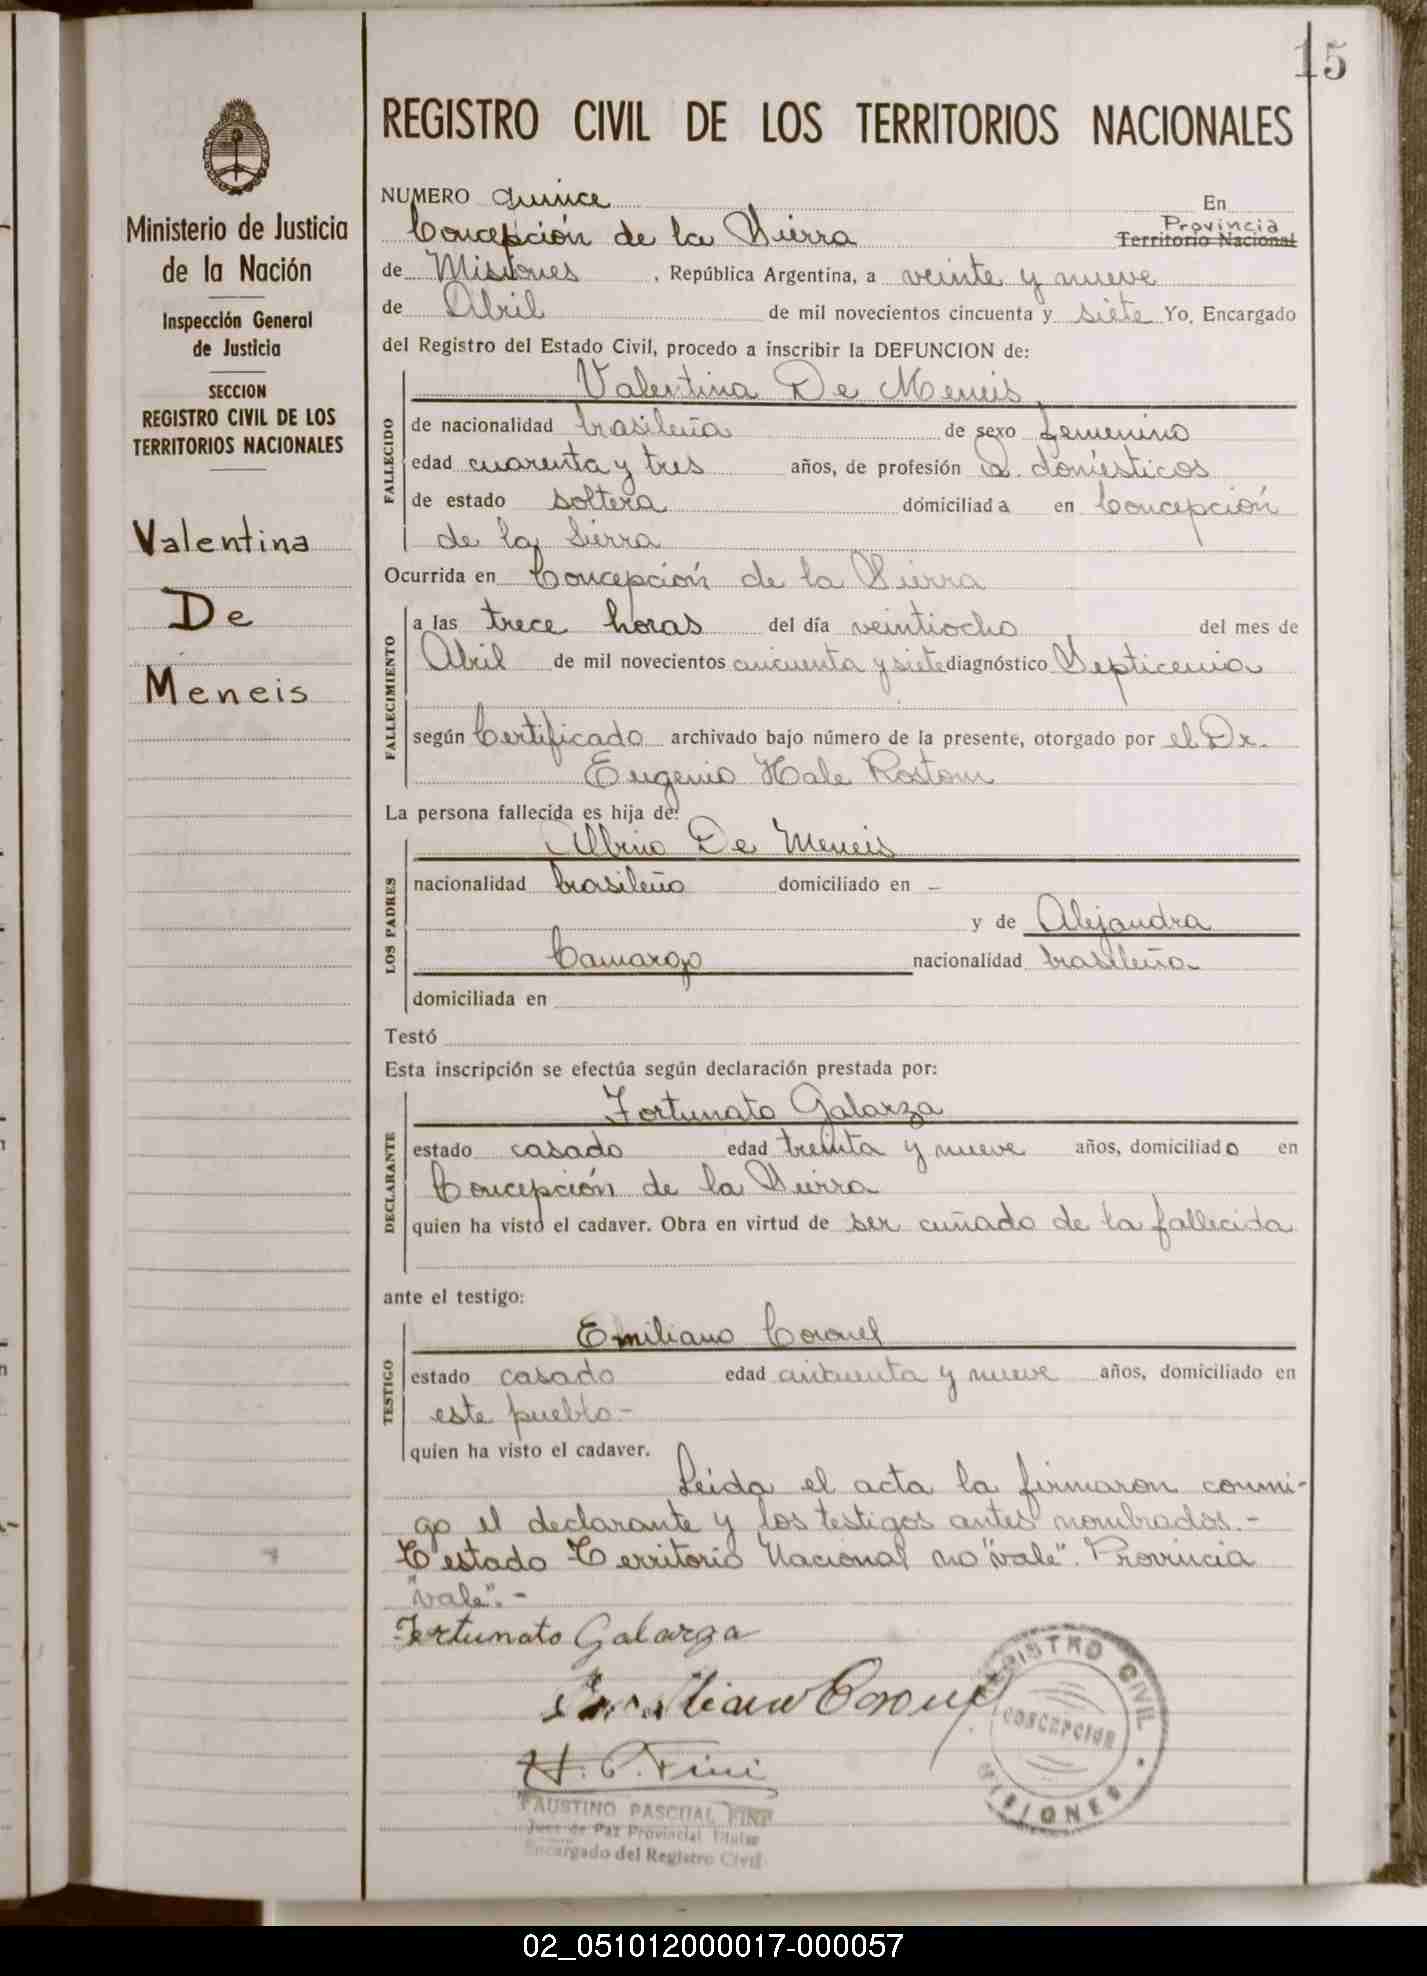 15
REGISTRO CIVIL DE LOS TERRITORIOS NACIONALES
Ministerio de Justicia
de la Nación
Inspección General
de Justicia
SECCION
REGISTRO CIVIL DE LOS
TERRITORIOS NACIONALES
Valentina
De
Meneis
NUMERO quince En
Concepción de la Sierra Provincia Territorio Nacional
de Misiones, República Argentina, a veinte y nueve
de Abril de mil novecientos cincuenta y siete Yo, Encargado
del Registro del Estado Civil, procedo a inscribir la DEFUNCION de:
FALLECIDO
Valentina De Meneis
de nacionalidad brasileña de sexo femenino
edad cuarenta y tres años, de profesión Q. domésticos
de estado soltera domiciliada en Concepción
de la Sierra
Ocurrida en Concepción de la Sierra
FALLECIMIENTO
a las trece horas del día veintiocho del mes de
Abril de mil novecientos cincuenta y siete diagnóstico Septicemia
según Certificado archivado bajo número de la presente, otorgado por el Dr.
Eugenio Hale Rostom
La persona fallecida es hija de:
LOS PADRES
Albino De Meneis
nacionalidad brasileño domiciliado en –
y de Alejandra
Camargo nacionalidad brasileña
domiciliada en
Testó
Esta inscripción se efectúa según declaración prestada por:
DECLARANTE
Fortunato Galarza
estado casado edad treinta y nueve años, domiciliado en
Concepción de la Sierra
quien ha visto el cadaver. Obra en virtud de ser cuñado de la fallecida
ante el testigo:
TESTIGO
Emiliano Coronel
estado casado edad cincuenta y nueve años, domiciliado en
este pueblo-
quien ha visto el cadaver.
Leida el acta la firmaron conmi-
go el declarante y los testigos antes nombrados.-
Testado Territorio Nacional no "vale". Provincia
"vale".-
Fortunato Galarza
Emiliano Coronel
REGISTRO CIVIL
CONCEPCION
MISIONES
H. P. Fini
FAUSTINO PASCUAL FINI
Juez de Paz Provincial Titular
Encargado del Registro Civil
02_051012000017-000057